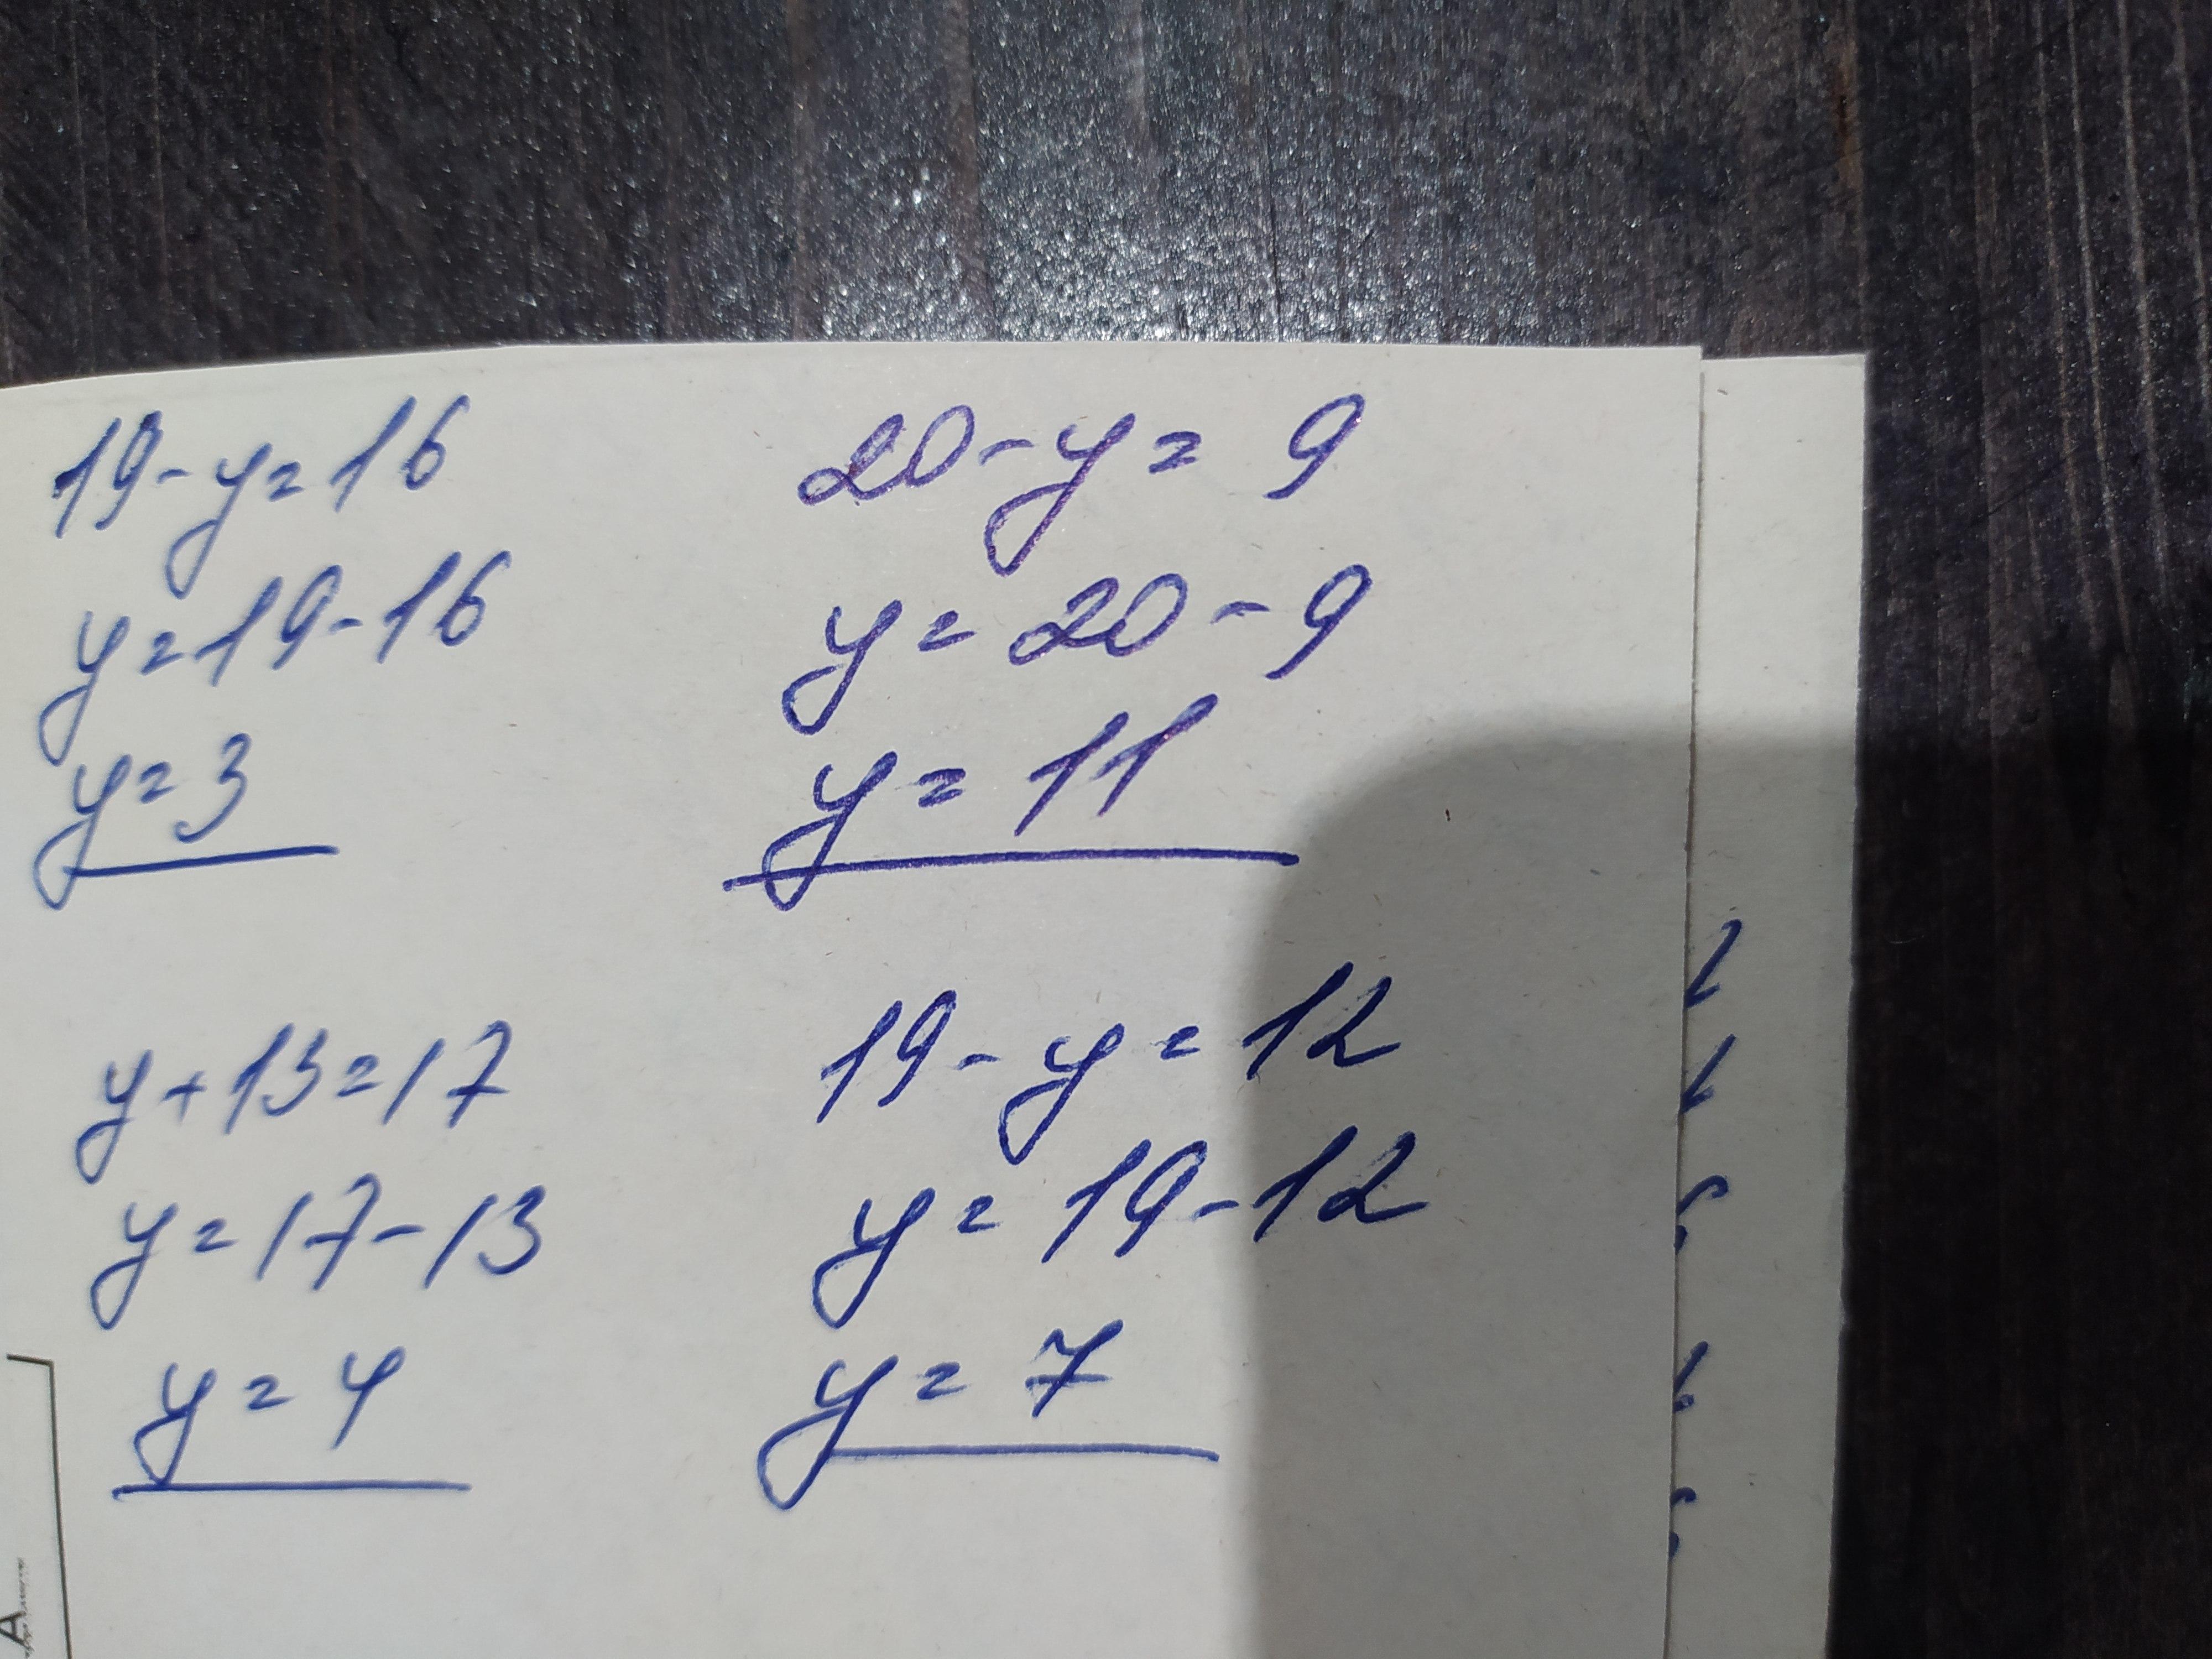 19-y=16
y=19-16
y=3
20-y=9
y=20-9
y=11
y+13=17
y=17-13
y=4
19-y=12
y=19-12
y=7
A